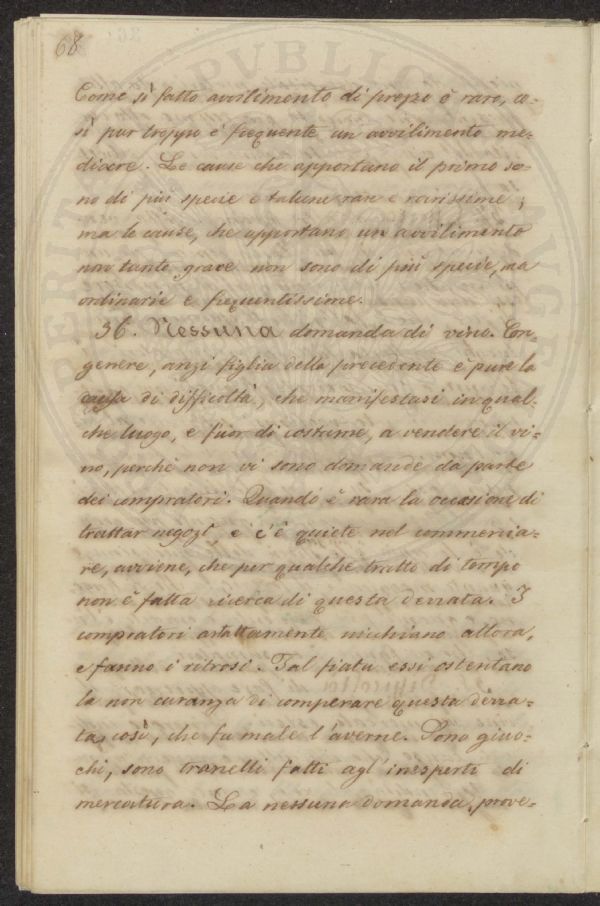 68
Come sì fatto avvilimento di prezzo è raro, co-
sì pur troppo è frequente un avvilimento me-
diocre. Le cause che apportano il primo so-
no di più specie e talune rare e rarissime;
ma le cause, che apportano un avvilimento
non tanto grave non sono di più specie, ma
ordinarie e frequentissime.
36. Nessuna domanda di vino. Con-
genere, anzi figlia della precedente è pure la
causa di difficoltà, che manifestasi in qual-
che luogo, e fuor di costume, a vendere il vi-
no, perchè non vi sono domande da parte
dei compratori. Quando è rara la occasione di
trattar negozî, e c'è quiete nel commercia-
re, avviene, che per qualche tratto di tempo
non è fatta ricerca di questa derrata. I
compratori astattamente nicchiano allora,
e fanno i ritrosi. Tal fiata essi ostentano
la non curanza di comperare questa derra-
ta, così, che fu male l'averne. Sono giuo-
chi, sono tranelli fatti agl'inesperti di
mercatura. La nessuna domanda, prove-
PUBLIC
VERITAS